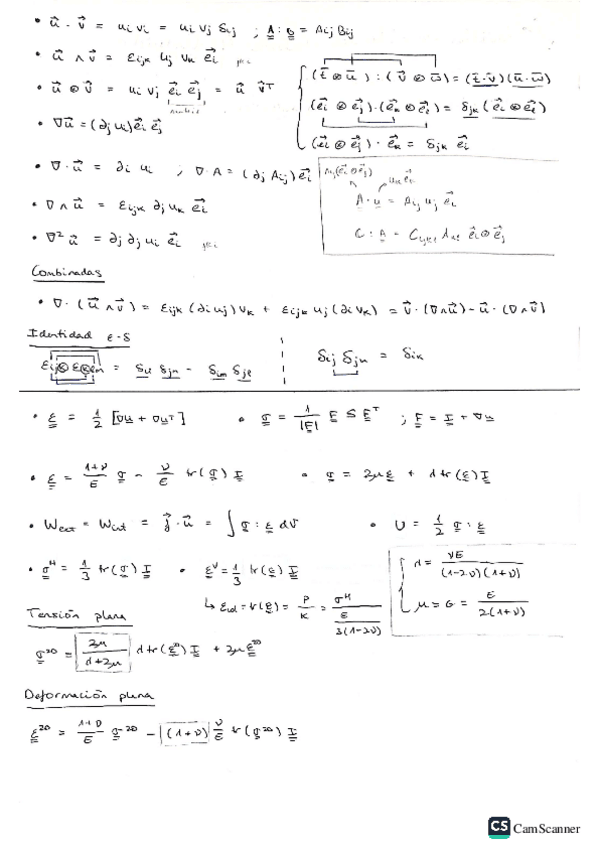 • u⃗ · v⃗ = ui vi = ui vj δij ; A : B = Aij Bij
• u⃗ ∧ v⃗ = εijk uj vk e⃗i
• u⃗ ⊗ v⃗ = ui vj e⃗i e⃗j = u⃗ v⃗ᵀ
(t̄ ⊗ ū) : (v̄ ⊗ w̄) = (t̄ · v̄)(ū · w̄)
(e⃗i ⊗ e⃗j) · (e⃗k ⊗ e⃗l) = δjk (e⃗i ⊗ e⃗l)
(e⃗i ⊗ e⃗j) · e⃗k = δjk e⃗i
• ∇u⃗ = (∂j ui) e⃗i e⃗j
• ∇ · u⃗ = ∂i ui ; ∇ · A = (∂j Aij) e⃗i
Aij(e⃗i ⊗ e⃗j) uk e⃗k
A · u = Aij uj e⃗i
C : A = Cijkl Akl e⃗i ⊗ e⃗j
• ∇ ∧ u⃗ = εijk ∂j uk e⃗i
• ∇² u⃗ = ∂j ∂j ui e⃗i
Combinadas
• ∇ · (u⃗ ∧ v⃗) = εijk (∂i uj) vk + εijk uj (∂i vk) = v⃗ · (∇ ∧ u⃗) - u⃗ · (∇ ∧ v⃗)
Identidad ε - δ
εijk εklm = δil δjm - δim δjl
δij δjk = δik
• ε = 1/2 [∇u + ∇uᵀ] • σ = 1/|F| F S Fᵀ ; F = I + ∇u
• ε = (1+ν)/E σ - ν/E tr(σ) I • σ = 2με + λ tr(ε) I
• Wext = Wint = f⃗ · u⃗ = ∫ σ : ε dV • U = 1/2 σ : ε
• σᴴ = 1/3 tr(σ) I • εⱽ = 1/3 tr(ε) I
λ = νE / (1-2ν)(1+ν)
μ = G = E / 2(1+ν)
↳ εvol = tr(ε) = P/K = σᴴ / (E / 3(1-2ν))
Tensión plana
σ²ᴰ = 2μ/(λ+2μ) λ tr(ε²ᴰ) I + 2μ ε²ᴰ
Deformación plana
ε²ᴰ = (1+ν)/E σ²ᴰ - (1+ν) ν/E tr(σ²ᴰ) I
CS CamScanner